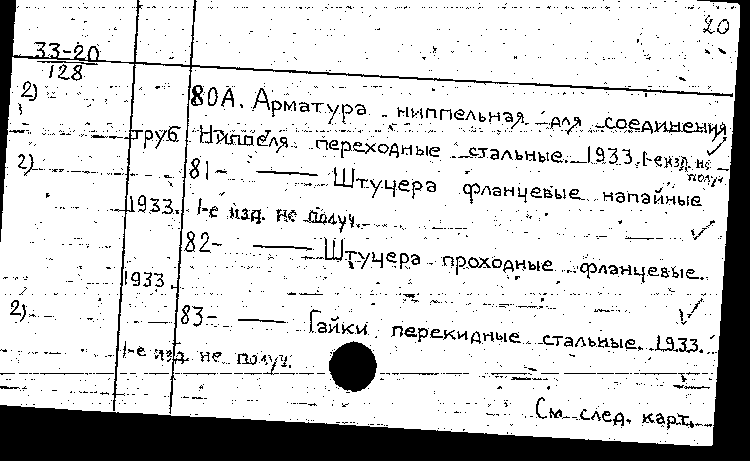 20
33-20
128
2) 80А. Арматура ниппельная для соединения
труб Ниппеля переходные стальные. 1933. 1-е изд. не получ.
2) 81- —— Штуцера фланцевые напайные
1933. 1-е изд. не получ.
82- —— Штуцера проходные фланцевые.
1933.
2) 83- —— Гайки перекидные стальные. 1933.
1-е изд. не получ.
См. след. карт.